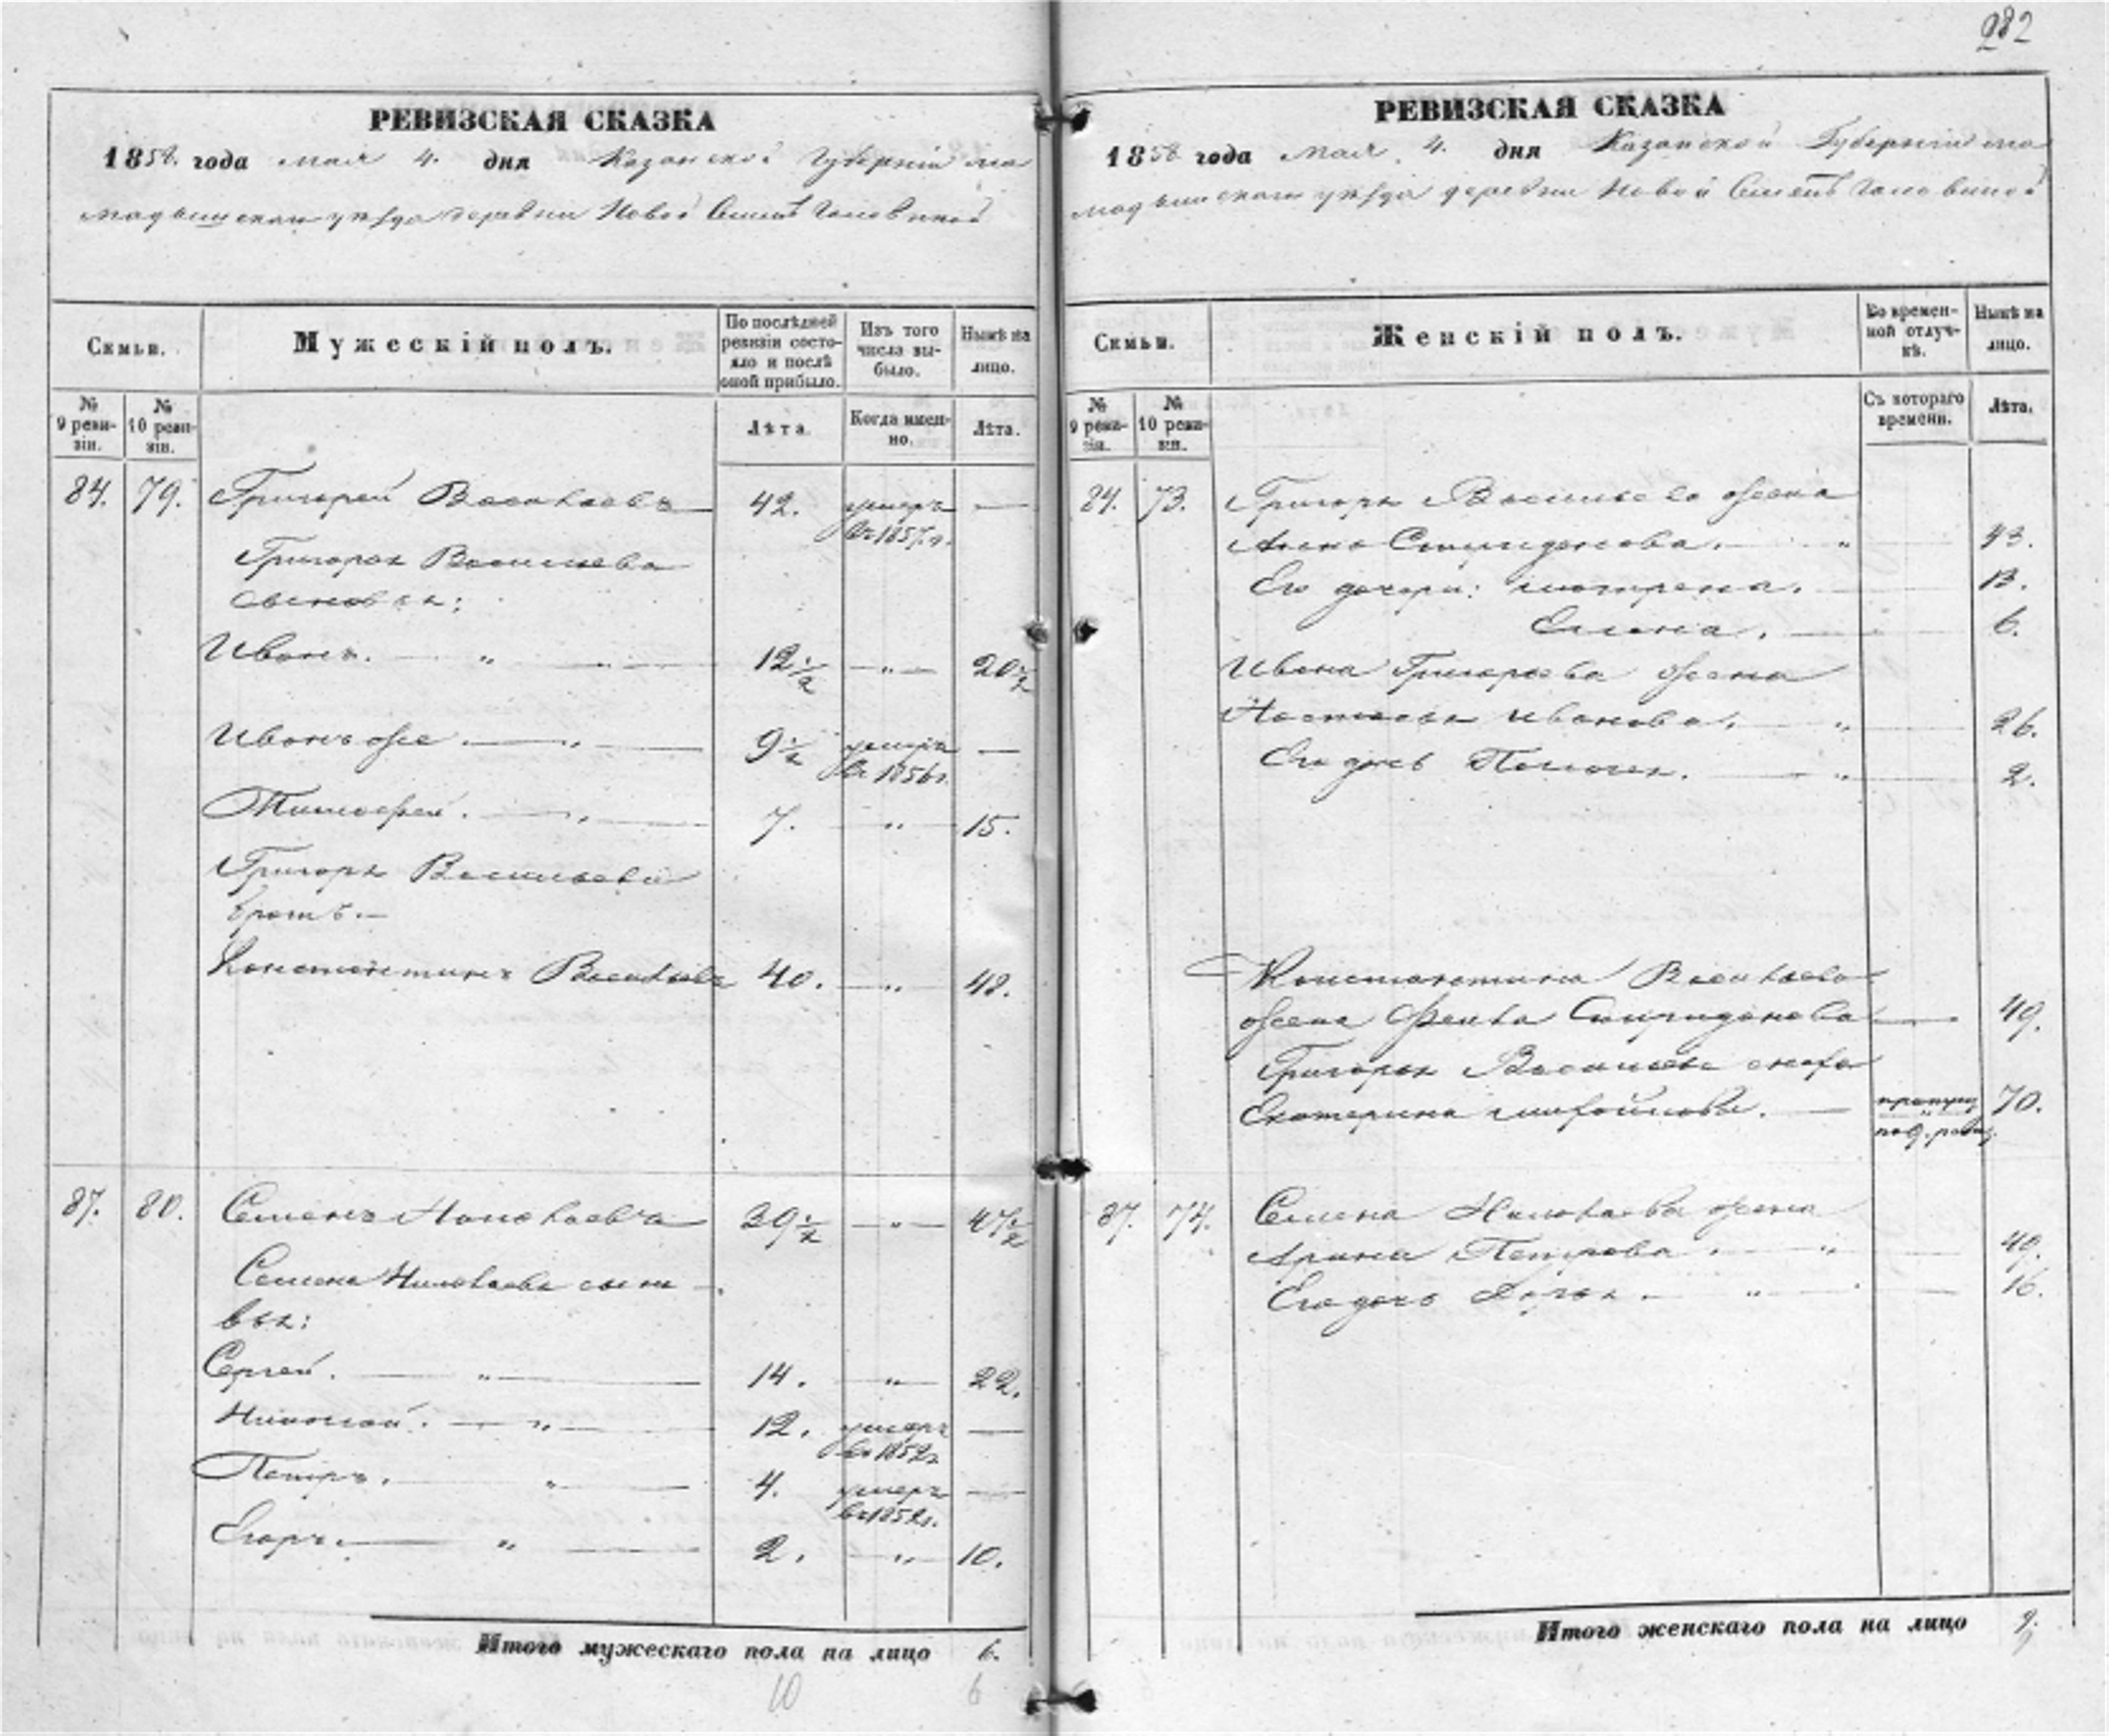 282
РЕВИЗСКАЯ СКАЗКА
1858. года мая 4. дня Казанской Губерніи ма
мадышскаго уѣзда деревни Новой
Семьи.
Мужескій полъ.
По послѣдней ревизіи состояло и послѣ оной прибыло.
Изъ того числа выбыло.
Нынѣ на лицо.
№ 9 ревизіи.
№ 10 ревизіи.
Лѣта.
Когда именно.
Лѣта.
84. 79. Григорей Васильевъ 42. умеръ —
въ 1857. г.
Григорья Васильева
сыновья:
Иванъ. — „ — 12 1/2 — „ — 20 1/2
Иванъ же. — „ — 9 1/2 умеръ —
въ 1856 г.
Тимофей. — „ — 7. — „ — 15.
Григорья Васильева
братъ. —
Константинъ Васильевъ 40. — „ — 48.
87. 80. Семенъ Николаевъ 39 1/2 — „ — 47 1/2
Семена Николаева сыно-
вья:
Сергей. — „ — 14. — „ — 22.
Николай. — „ — 12. умеръ —
въ 1852 г.
Петръ. — „ — 4. умеръ —
въ 1852 г.
Егоръ. — „ — 2. — „ — 10.
Итого мужескаго пола на лицо 6.
10 6
РЕВИЗСКАЯ СКАЗКА
1858 года мая 4. дня Казанской Губерніи ма
мадышскаго уѣзда деревни Новой
Семьи.
Женскій полъ.
Во временной отлучкѣ.
Нынѣ на лицо.
№ 9 ревизіи.
№ 10 ревизіи.
Съ котораго времени.
Лѣта.
84. 73. Григорья Васильева жена
Анна Спиридонова. — „ — 43.
Его дочери: Матрена. — 13.
Елена. — 6.
Ивана Григорьева жена
Настасья Иванова. — „ — 26.
Его дочь — „ — 2.
Константина Васильева
жена Фекла Спиридонова — 49.
Григорья Васильева сноха
Екатерина Михайлова. — пропущ. 70.
по 9. ревиз.
87. 74. Семена Николаева жена
Арина Петрова. — „ — 49.
Его дочь Дарья. — „ — 16.
Итого женскаго пола на лицо 9.